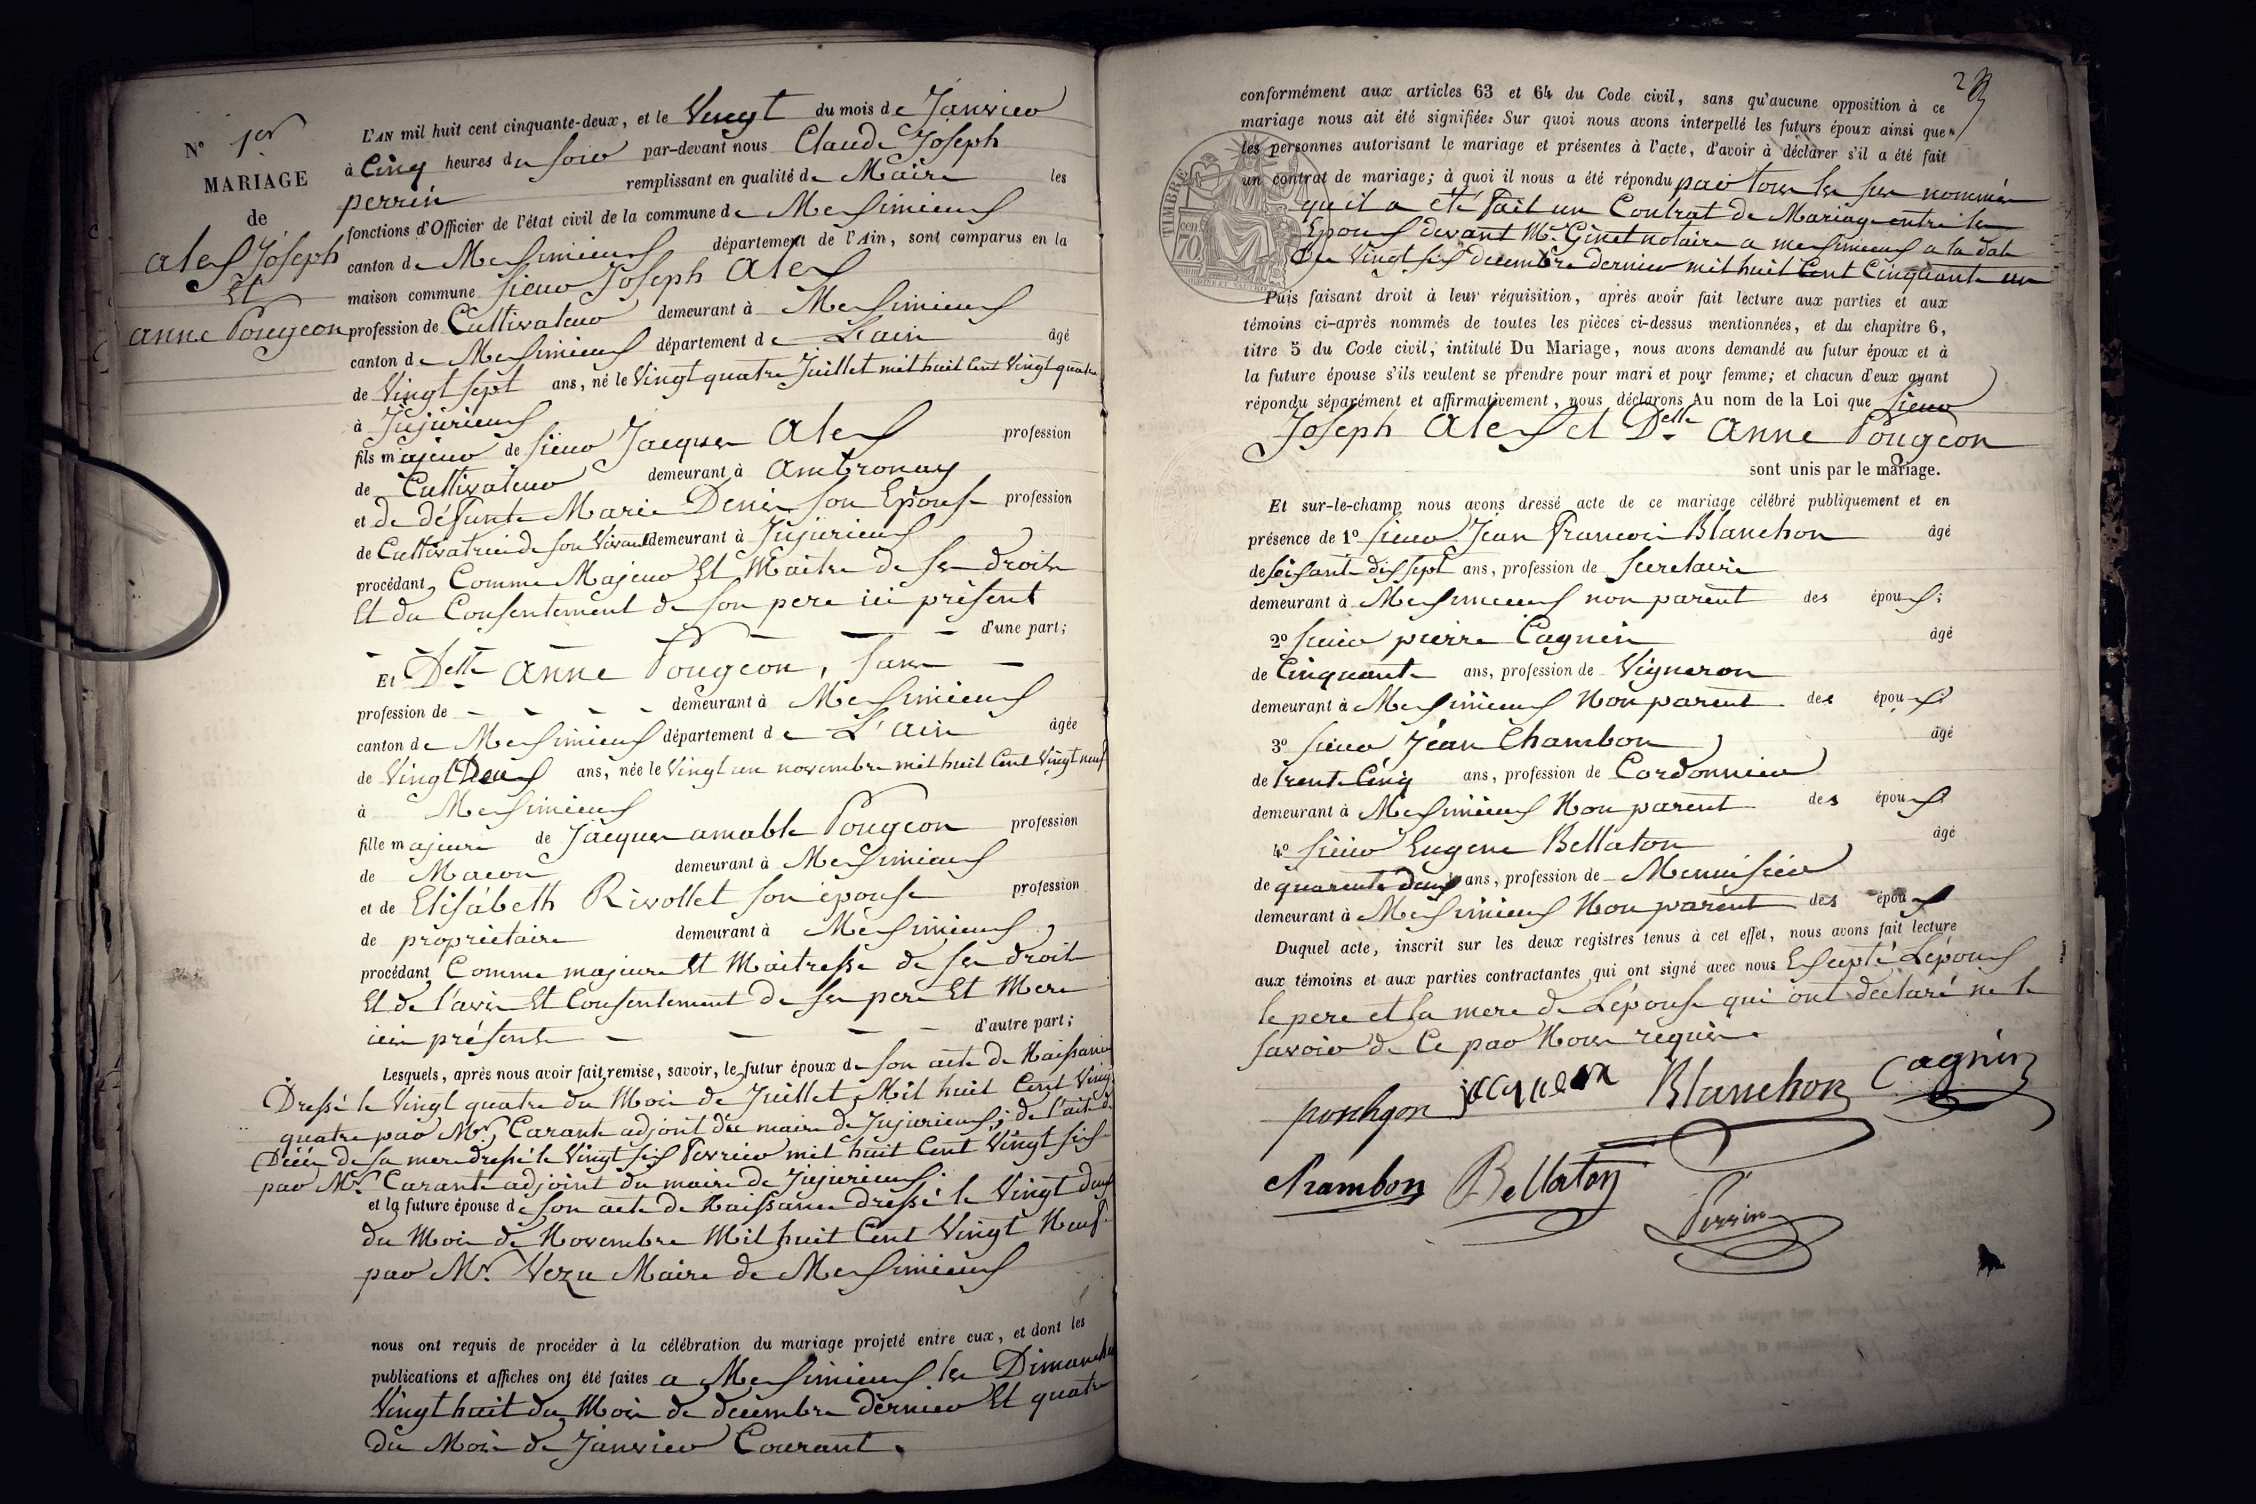 N° 1er
MARIAGE
de
alex Joseph
Et
anne Pougeon
L'AN mil huit cent cinquante-deux, et le Vingt du mois de Janvier
à Cinq heures du soir par-devant nous Claude Joseph
perrin remplissant en qualité de Maire les
fonctions d'Officier de l'état civil de la commune de Meximieux
canton de Meximieux département de l'Ain, sont comparus en la
maison commune sieur Joseph Alex
profession de Cultivateur demeurant à Meximieux
canton de Meximieux département de L'ain âgé
de Vingt sept ans, né le Vingt quatre Juillet mil huit Cent Vingt quatre
à Jujurieux
fils majeur de sieur Jacques Alex profession
de Cultivateur demeurant à Ambronay
et de défunte Marie Denis son Epouse profession
de Cultivatrice de son Vivant demeurant à Jujurieux
procédant, Comme Majeur Et Maitre de ses droits
Et du Consentement de son pere ici présent
d'une part;
Et Delle Anne Pougeon, sans
profession de demeurant à Meximieux
canton de Meximieux département de L'ain âgée
de Vingt Deux ans, née le Vingt un novembre mil huit Cent Vingt neuf
à Meximieux
fille majeure de Jacques amable Pougeon profession
de Macon demeurant à Meximieux
et de Elisabeth Rivollet son épouse profession
de propriétaire demeurant à Meximieux,
procédant Comme majeure Et Maitresse de ses droits
Et de l'avis Et Consentement de ses pere Et Mere
ici présents d'autre part;
Lesquels, après nous avoir fait remise, savoir, le futur époux de son acte de Naissance
Dressé le Vingt quatre du Mois de Juillet Mil huit Cent Vingt
quatre par Mr. Carante adjoint du maire de Jujurieux; de l'acte de
Décès de sa mere dressé le Vingt six Fevrier mil huit Cent Vingt six
par Mr. Carante adjoint du maire de Jujurieux.
et la future épouse de son acte de Naissance dressé le Vingt deux
du Mois de Novembre Mil huit Cent Vingt Neuf.
par Mr. Vezu Maire de Meximieux
nous ont requis de procéder à la célébration du mariage projeté entre eux, et dont les
publications et affiches ont été faites a Meximieux les Dimanches
Vingt huit du Mois de decembre dernier Et quatre
du Mois de Janvier Courant.
conformément aux articles 63 et 64 du Code civil, sans qu'aucune opposition à ce
mariage nous ait été signifiée: Sur quoi nous avons interpellé les futurs époux ainsi que
les personnes autorisant le mariage et présentes à l'acte, d'avoir à déclarer s'il a été fait
un contrat de mariage; à quoi il nous a été répondu par tous les sus nommés
qu'il a été fait un Contrat de Mariage entre les
Epoux devant Mr. Ginet notaire a meximieux a la date
Du Vingt six decembre dernier mil huit Cent Cinquante un
TIMBRE
70 cen
Puis faisant droit à leur réquisition, après avoir fait lecture aux parties et aux
témoins ci-après nommés de toutes les pièces ci-dessus mentionnées, et du chapitre 6,
titre 5 du Code civil, intitulé Du Mariage, nous avons demandé au futur époux et à
la future épouse s'ils veulent se prendre pour mari et pour femme; et chacun d'eux ayant
répondu séparément et affirmativement, nous déclarons Au nom de la Loi que sieur
Joseph Alex et Delle Anne Pougeon
sont unis par le mariage.
Et sur-le-champ nous avons dressé acte de ce mariage célébré publiquement et en
présence de 1° sieur Jean Francois Blanchon âgé
de soixante dix sept ans, profession de Secretaire
demeurant à Meximieux non parent des époux;
2° sieur pierre Cagnin âgé
de Cinquante ans, profession de Vigneron
demeurant à Meximieux Non parent des époux;
3° sieur Jean Chambon âgé
de trente Cinq ans, profession de Cordonnier
demeurant à Meximieux Non parent des époux
4° sieur Eugene Bellaton âgé
de quarente deux ans, profession de Menuisier
demeurant à Meximieux Non parent des époux
Duquel acte, inscrit sur les deux registres tenus à cet effet, nous avons fait lecture
aux témoins et aux parties contractantes qui ont signé avec nous Excepté L'époux
le pere et la mere de L'épouse qui ont déclaré ne le
savoir de Ce par Nous requis.
ponhgon jacquem Blanchon Cagnin
Chambon Bellaton
Perrin